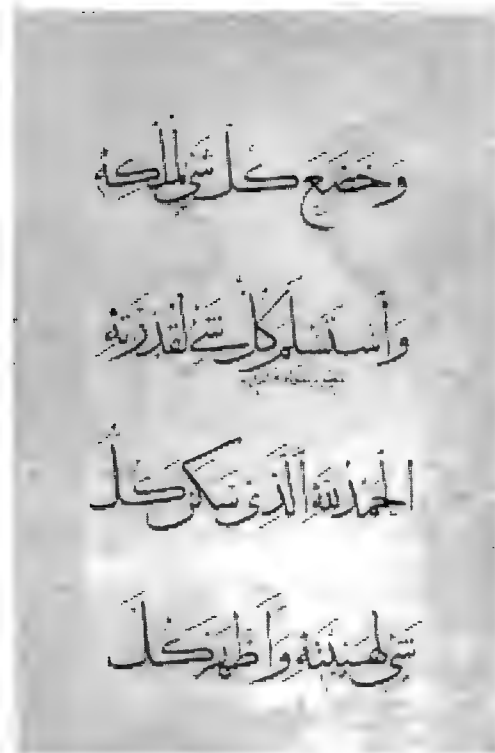 وَخَضَعَ كُلُّ شَيْءٍ لِمُلْكِهِ
وَاسْتَسْلَمَ كُلُّ شَيْءٍ لِقُدْرَتِهِ
الْحَمْدُ لِلّهِ الَّذِي سَكَنَ كُلُّ
شَيْءٍ لِهَيْبَتِهِ وَأَظْهَرَ كُلَّ